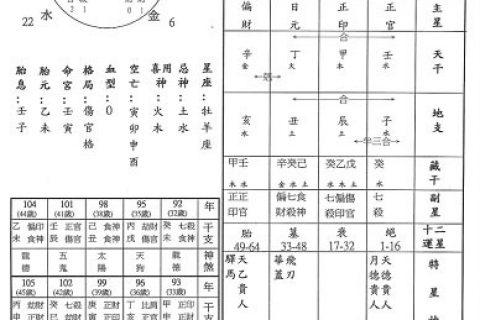 22 水 金 6
星座:牡羊座
忌神:土水
喜用神:火木
空亡:寅卯申酉
血型:O
格局:傷官格
命宮:壬寅
胎元:乙未
胎息:壬子
104 101 98 95 92 年
(44歲) (41歲) (38歲) (35歲) (32歲)
乙偏印 壬正官 己食神 丙劫財 癸七殺 干
未食神 辰傷官 丑食神 戌傷官 未食神 支
龍德 五鬼 太陽 天狗 龍德 神煞
105 102 99 96 93 年
(45歲) (42歲) (39歲) (36歲) (33歲)
丙劫財 癸七殺 庚正財 丁比肩 甲正印 干
偏財 日元 正印 正官 主星
合
辛 丁 甲 壬 天干
金 火 木 水
合
亥 丑 辰 子 地支
水 土 土 水
三合
甲壬 辛癸己 癸乙戊 癸 藏干
木水 金水土 水木土 水
正正 偏七食 七偏傷 七 副星
印官 財殺神 殺印官 殺
胎 墓 衰 絕 十二運星
49-64 33-48 17-32 1-16
驛馬 天乙貴人 華蓋 飛刃 月德貴人 天德貴人 特星